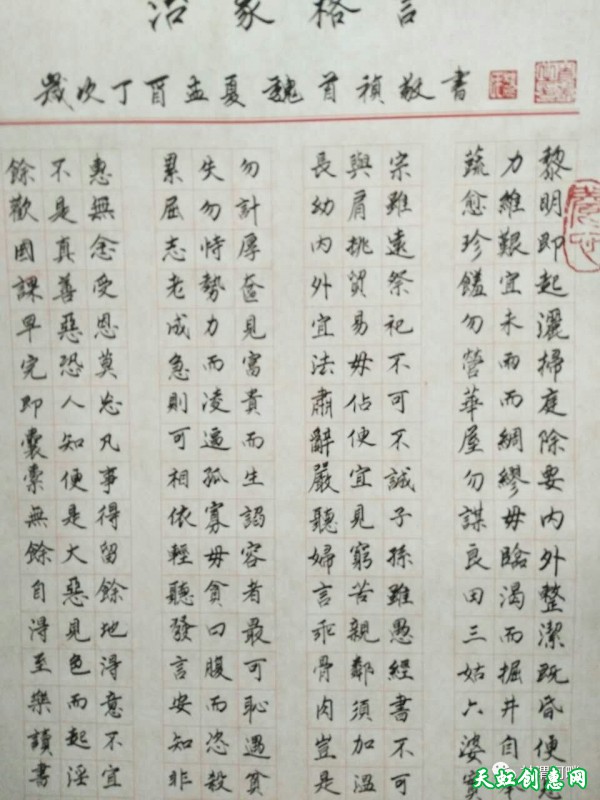 治家格言
歲次丁酉孟夏魏首禎敬書
黎明即起灑掃庭除要内外整潔既昏便
力維艱宜未雨而綢繆毋臨渴而掘井自
蔬愈珍饈勿營華屋勿謀良田三姑六婆實
宗雖遠祭祀不可不誠子孫雖愚經書不可
與肩挑貿易毋佔便宜見窮苦親鄰須加溫
長幼内外宜法肅辭嚴聽婦言乖骨肉豈是
勿計厚奩見富貴而生諂容者最可恥遇貧
失勿恃勢力而凌逼孤寡毋貪口腹而恣殺
累屈志老成急則可相依輕聽發言安知非
惠無念受恩莫忘凡事得留餘地得意不宜
不是真善惡恐人知便是大惡見色而起淫
餘歡國課早完即囊橐無餘自得至樂讀書
天虹创意网